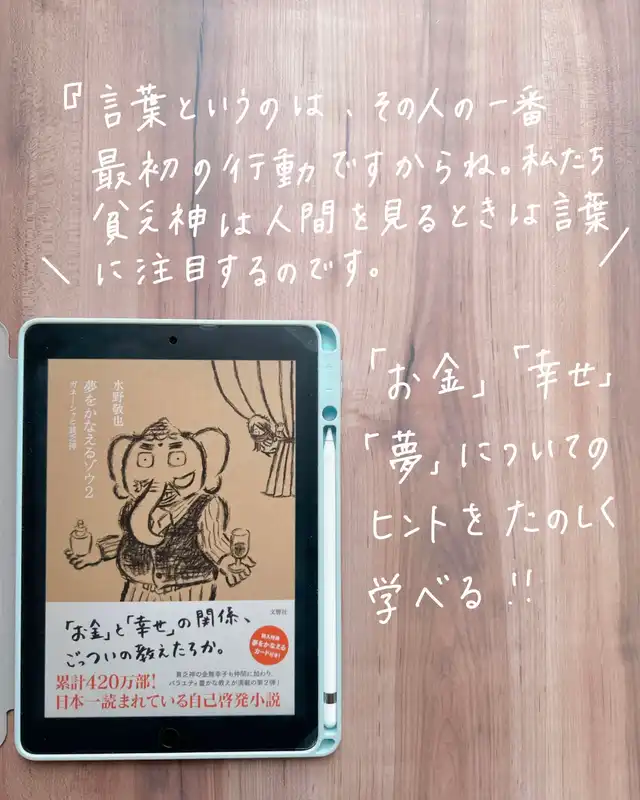 『言葉というのは、その人の一番
最初の行動ですからね。私たち
貧乏神は人間を見るときは言葉
に注目するのです。
「お金」「幸せ」
「夢」についての
ヒントをたのしく
学べる!!
水野敬也
夢をかなえるゾウ2
ガネーシャと貧乏神
文響社
「お金」と「幸せ」の関係、
ごっついの教えたろか。
購入特典
夢をかなえる
カード付き!
貧乏神の金無幸子も仲間に加わり、
バラエティ豊かな教えが満載の第2弾!
累計420万部!
日本一読まれている自己啓発小説